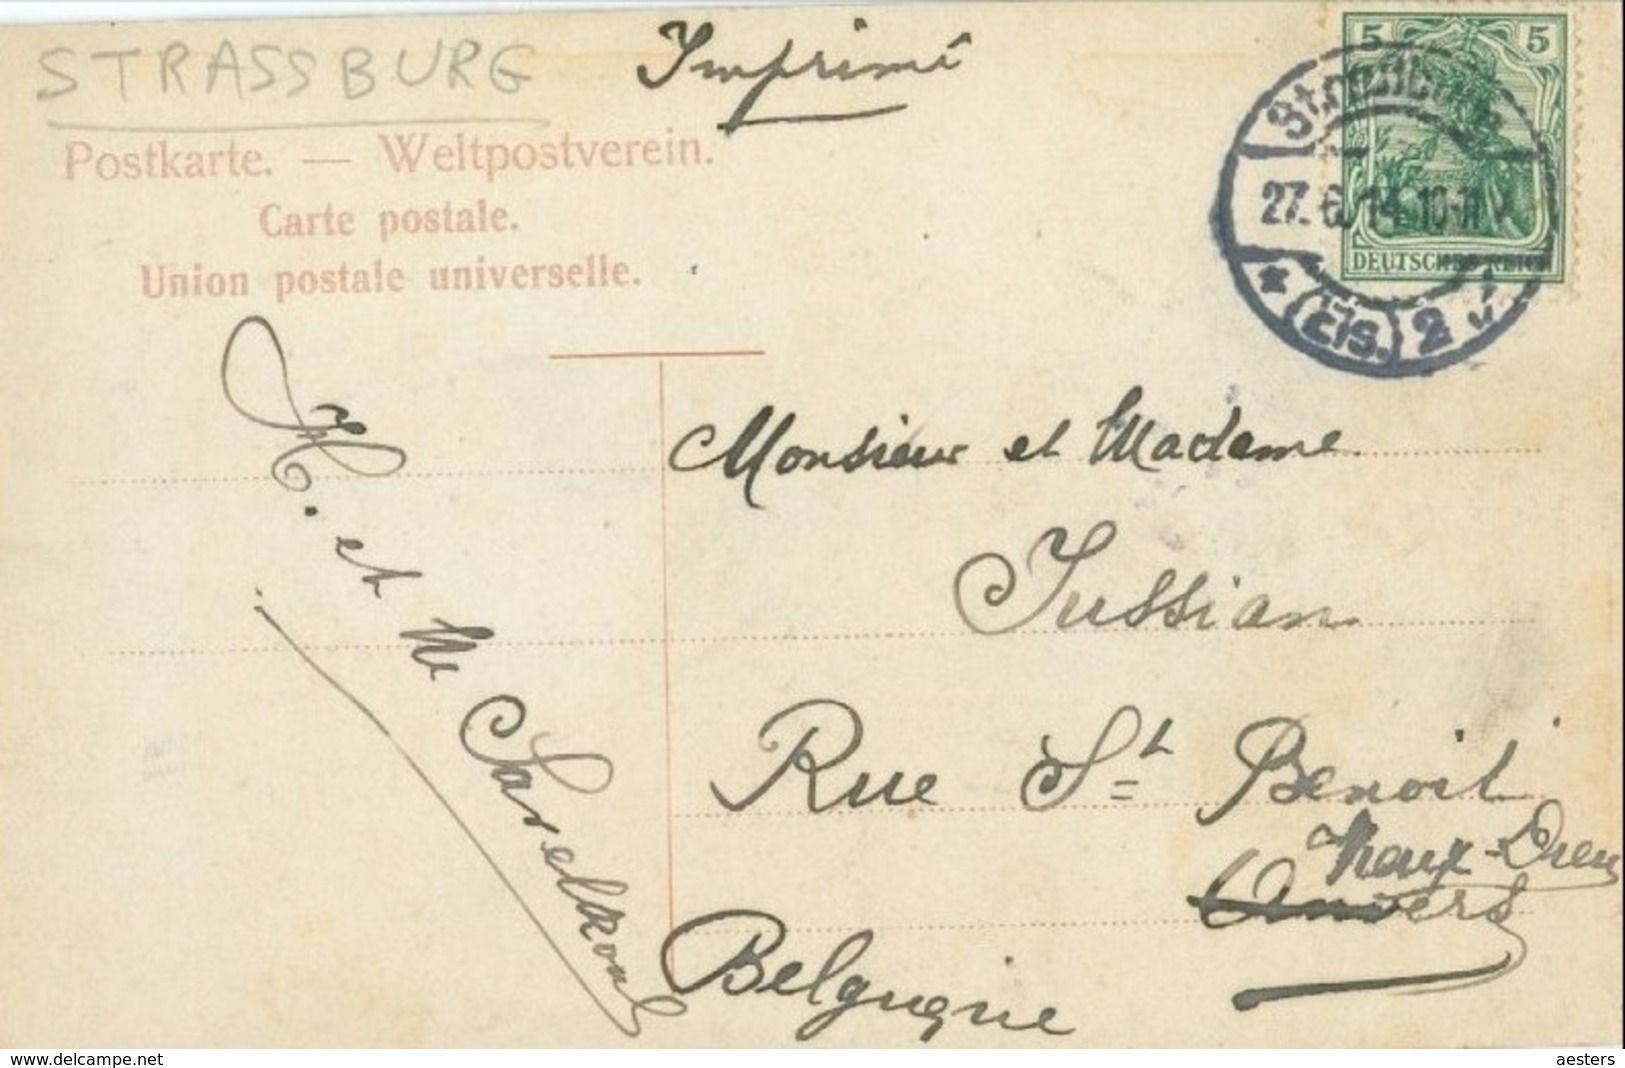 STRASSBURG
Imprimé
Postkarte. — Weltpostverein.
Carte postale.
Union postale universelle.
5 5
DEUTSCHES REICH
Strassburg
27. 6. 14. 10-11 V
* (Els.) 2
Monsieur et Madame
Jussian
Rue St Benoit
Vieux-Dieu
Anvers
Belgique
M. et Me
www.delcampe.net
aesters